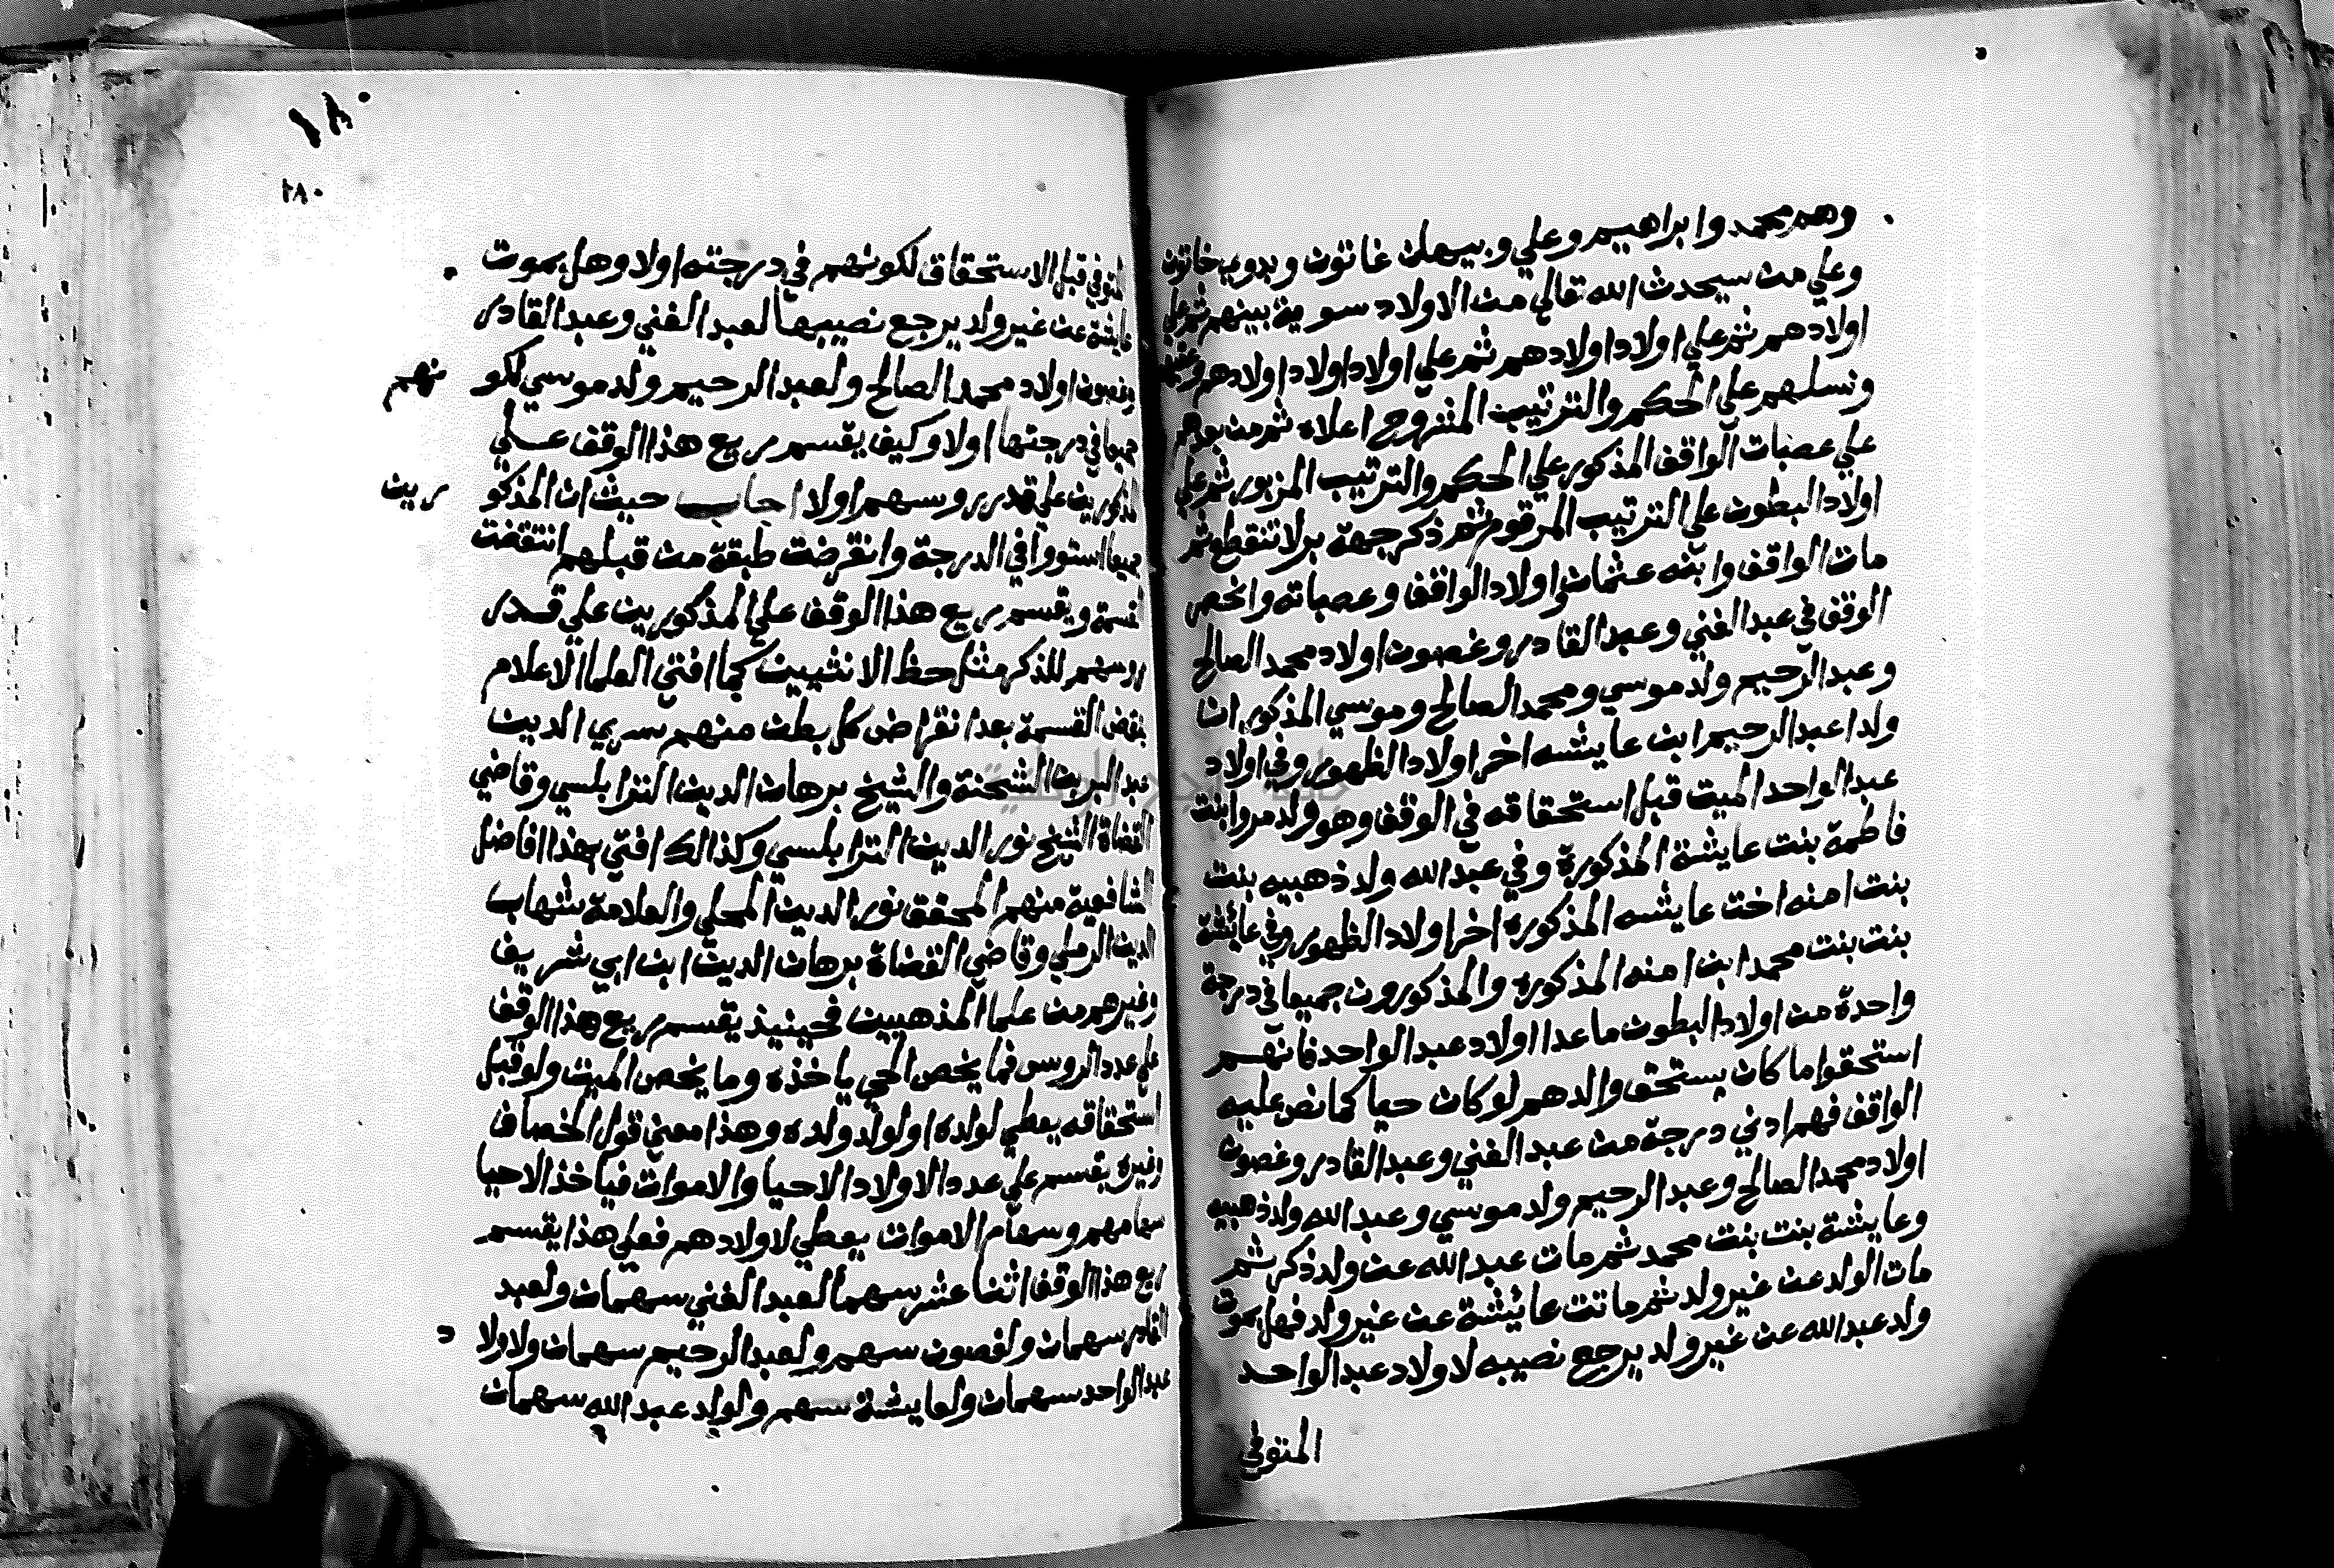 وهم محمد وابراهيم وعلي وبيعلن غاتون وبدوي خاتون
وعلي من سيحدث الله تعالي من الاولاد سوية بينهم ثم علي
اولادهم ثم علي اولاد اولادهم ثم علي اولاد اولاد اولادهم وعقبهم
ونسلهم علي الحكم والترتيب المشروح اعلاه ثم من بعدهم
علي عصبات الواقف المذكور علي الحكم والترتيب المزبور ثم علي
اولاد البطون علي الترتيب المرقوم ثم ذكر جهة بر لا تنقطع ثم
مات الواقف وابنه عثمان واولاد الواقف وعصباته وانحصر
الوقف في عبد الغني وعبد القادر وغصون اولاد محمد الصالح
وعبد الرحيم ولد موسي ومحمد الصالح وموسي المذكوران
ولدا عبد الرحيم ابن عايشه اخر اولاد الظهور وفي اولاد
عبد الواحد الميت قبل استحقاقه في الوقف وهو ولد مروا بنت
فاطمة بنت عايشة المذكورة وفي عبد الله ولد ذهبيه بنت
بنت امنه اخت عايشه المذكوره اخر اولاد الظهور وفي عايشة
بنت بنت محمد ابن امنه المذكوره والمذكورون جميعا في درجة
واحدة من اولاد البطون ما عدا اولاد عبد الواحد فانهم
استحقوا ما كان يستحق والدهم لو كان حيا كما نص عليه
الواقف فهم ادني درجة من عبد الغني وعبد القادر وغصون
اولاد محمد الصالح وعبد الرحيم ولد موسي وعبد الله ولد ذهبيه
وعايشة بنت بنت محمد ثم مات عبد الله عن ولد ذكر ثم
مات الولد عن غير ولد ثم ماتت عايشة عن غير ولد فهل بموت
ولد عبد الله عن غير ولد يرجع نصيبه لاولاد عبد الواحد
المتوفي
١٨٠
٢٨٠
المتوفي قبل الاستحقاق لكونهم في درجته اولا وهل بموت
عايشة عن غير ولد يرجع نصيبها لعبد الغني وعبد القادر
وغصون اولاد محمد الصالح ولعبد الرحيم ولد موسي لكو نهم
جميعا في درجتها اولا وكيف يقسم ريع هذا الوقف علي
المذكورين علي قدر روسهم اولا اجاب حيث ان المذكو رين
جميعا استووا في الدرجة وانقرضت طبقة من قبلهم انتقضت
القسمة ويقسم ريع هذا الوقف علي المذكورين علي قدر
روسهم للذكر مثل حظ الانثيين كما افتي العلما الاعلام
بنقض القسمة بعد انقراض كل بطن منهم سري الدين
عبد البر بن الشحنة والشيخ برهان الدين الترابلسي وقاضي
القضاة الشيخ نور الدين الترابلسي وكذالك افتي بهذا افاضل
الشافعية منهم المحقق نور الدين المحلي والعلامة شهاب
الدين الرملي وقاضي القضاة برهان الدين ابن ابي شريف
وغيرهم من علما المذهبين فحينيذ يقسم ريع هذا الوقف
علي عدد الروس فما يخص الحي ياخذه وما يخص الميت ولو قبل
استحقاقه يعطي لولده او لولد ولده وهذا معني قول الخصاف
وغيره يقسم علي عدد الاولاد الاحيا والاموات فياخذ الاحيا
سهامهم وسهام الاموات يعطي لاولادهم فعلي هذا يقسم
ريع هذا الوقف اثنا عشر سهما لعبد الغني سهمان ولعبد
القادر سهمان ولغصون سهم ولعبد الرحيم سهمان ولاولا د
عبد الواحد سهمان ولعايشة سهم ولولد عبد الله سهمان